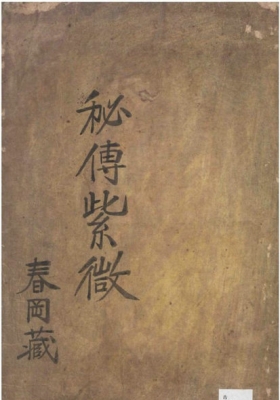 秘傳紫微
春岡藏